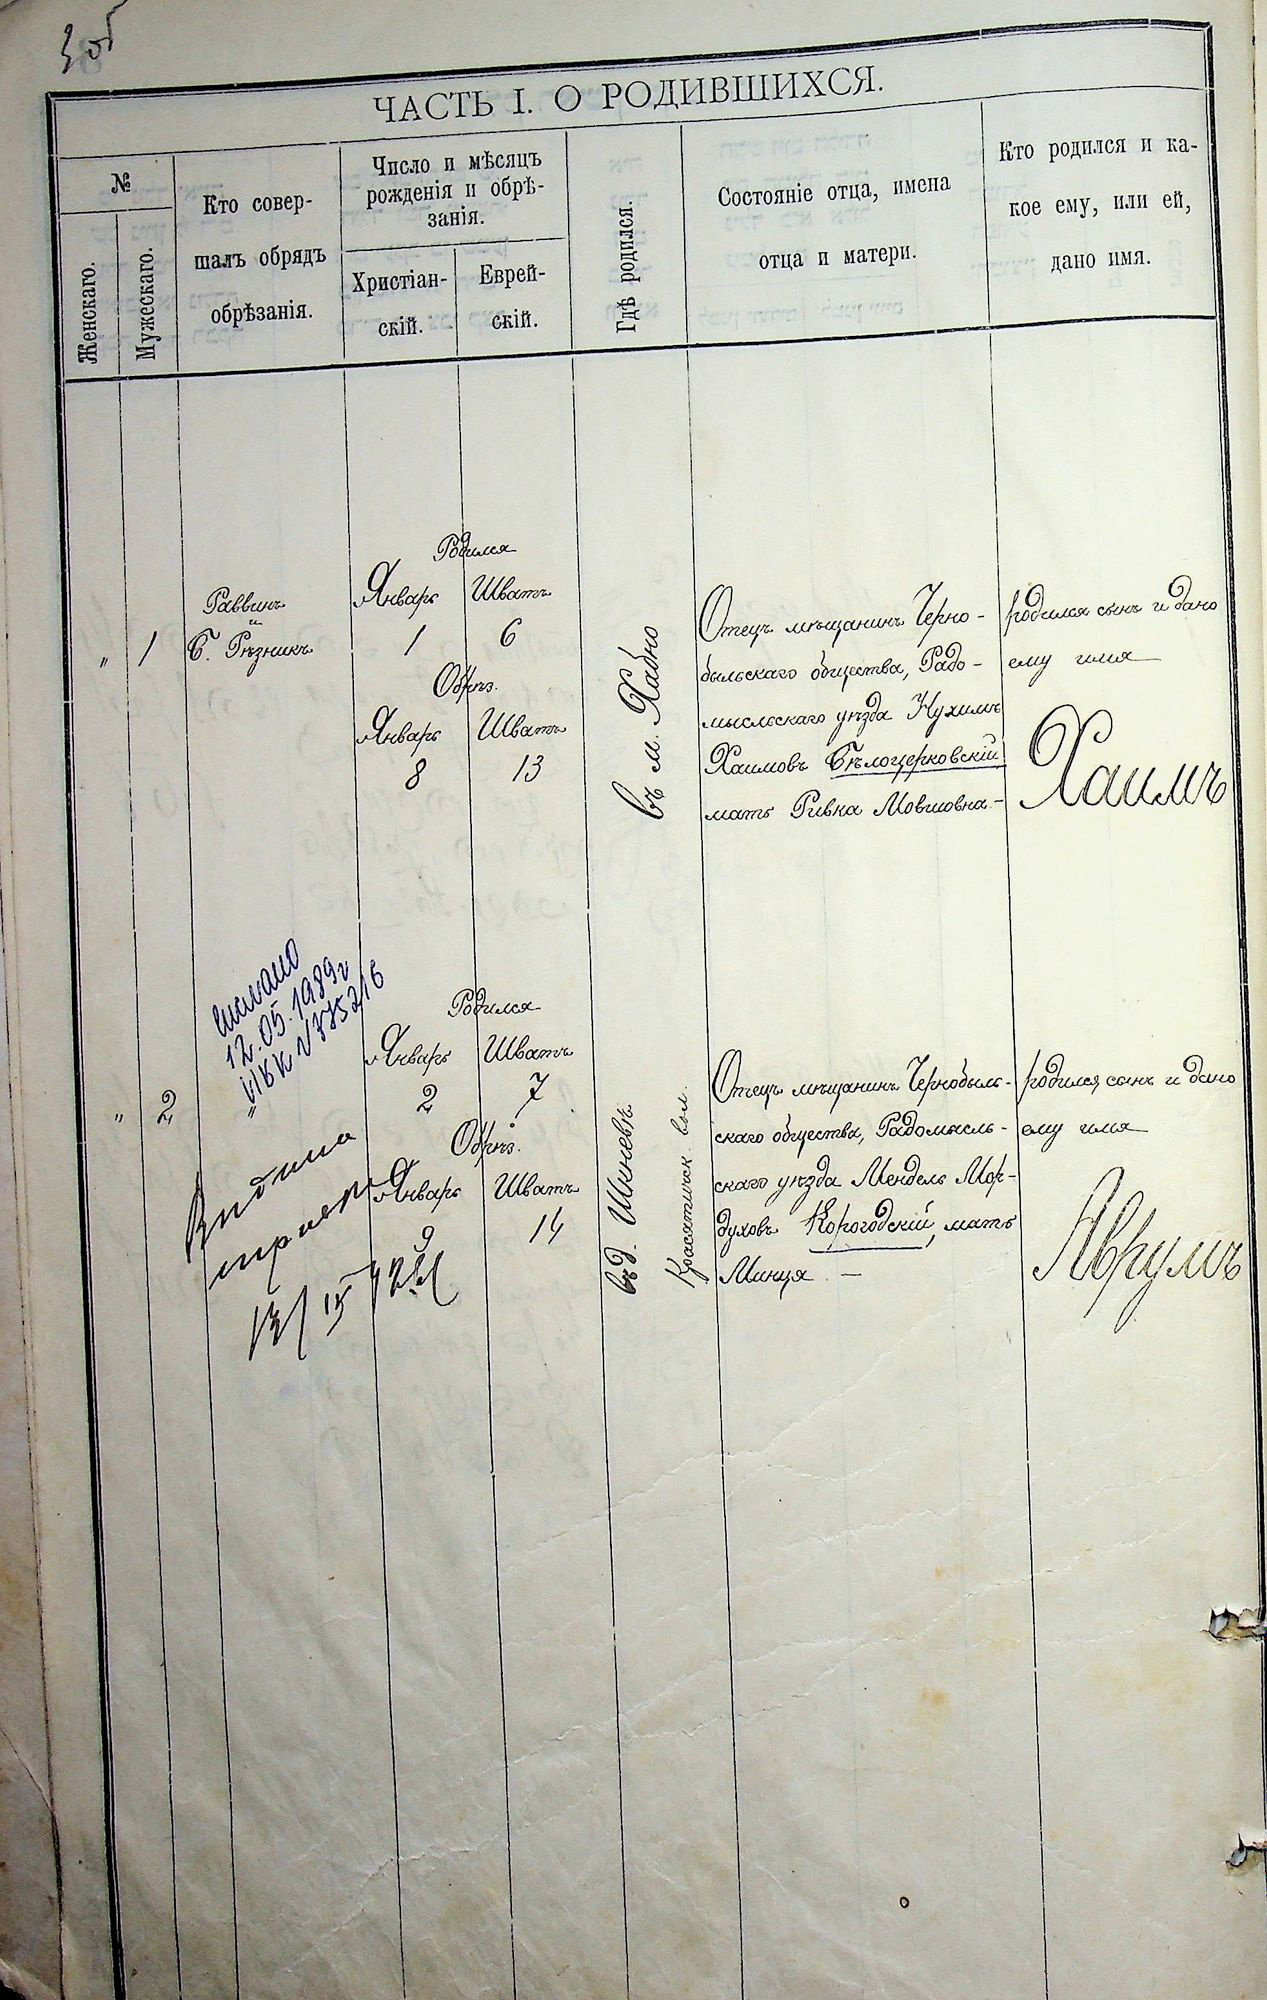 3 об
ЧАСТЬ I. О РОДИВШИХСЯ.
№
Женскаго.
Мужескаго.
Кто совер-
шалъ обрядъ
обрѣзанія.
Число и мѣсяцъ
рожденія и обрѣ-
занія.
Христіан-
скій.
Еврей-
скій.
Гдѣ родился.
Состояніе отца, имена
отца и матери.
Кто родился и ка-
кое ему, или ей,
дано имя.
"
1
Раввинъ
и
Б. Рѣзникъ
Родился
Январь Шватъ
1 6
Обрѣз.
Январь Шватъ
8 13
въ м. Хабно
Отецъ мѣщанинъ Черно-
быльскаго общества, Радо-
мысльскаго уѣзда Нухимъ
Хаимовъ Бѣлоцерковскій
мать Ривка Мовшовна -
родился сынъ и дано
ему имя
Хаимъ
"
2
"
12.05.1989г
Родился
Январь Шватъ
2 7
Обрѣз.
Январь Шватъ
9 14
въ д. Шкневѣ
Красятичск. вол.
Отецъ мѣщанинъ Чернобыль-
скаго общества, Радомысль-
скаго уѣзда Мендель Мор-
духовъ Корогодскій, мать
Минця. —
родился сынъ и дано
ему имя
Аврумъ
Видана